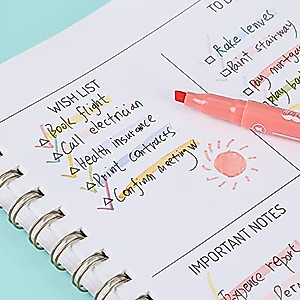 TO D
WISH LIST
Book flight
Call electrician
Health insurance
Print contracts
Confirm meeting w
Rake leaves
Paint stairway
Pay mortgage
play ba
IMPORTANT NOTES
Expense report
Per